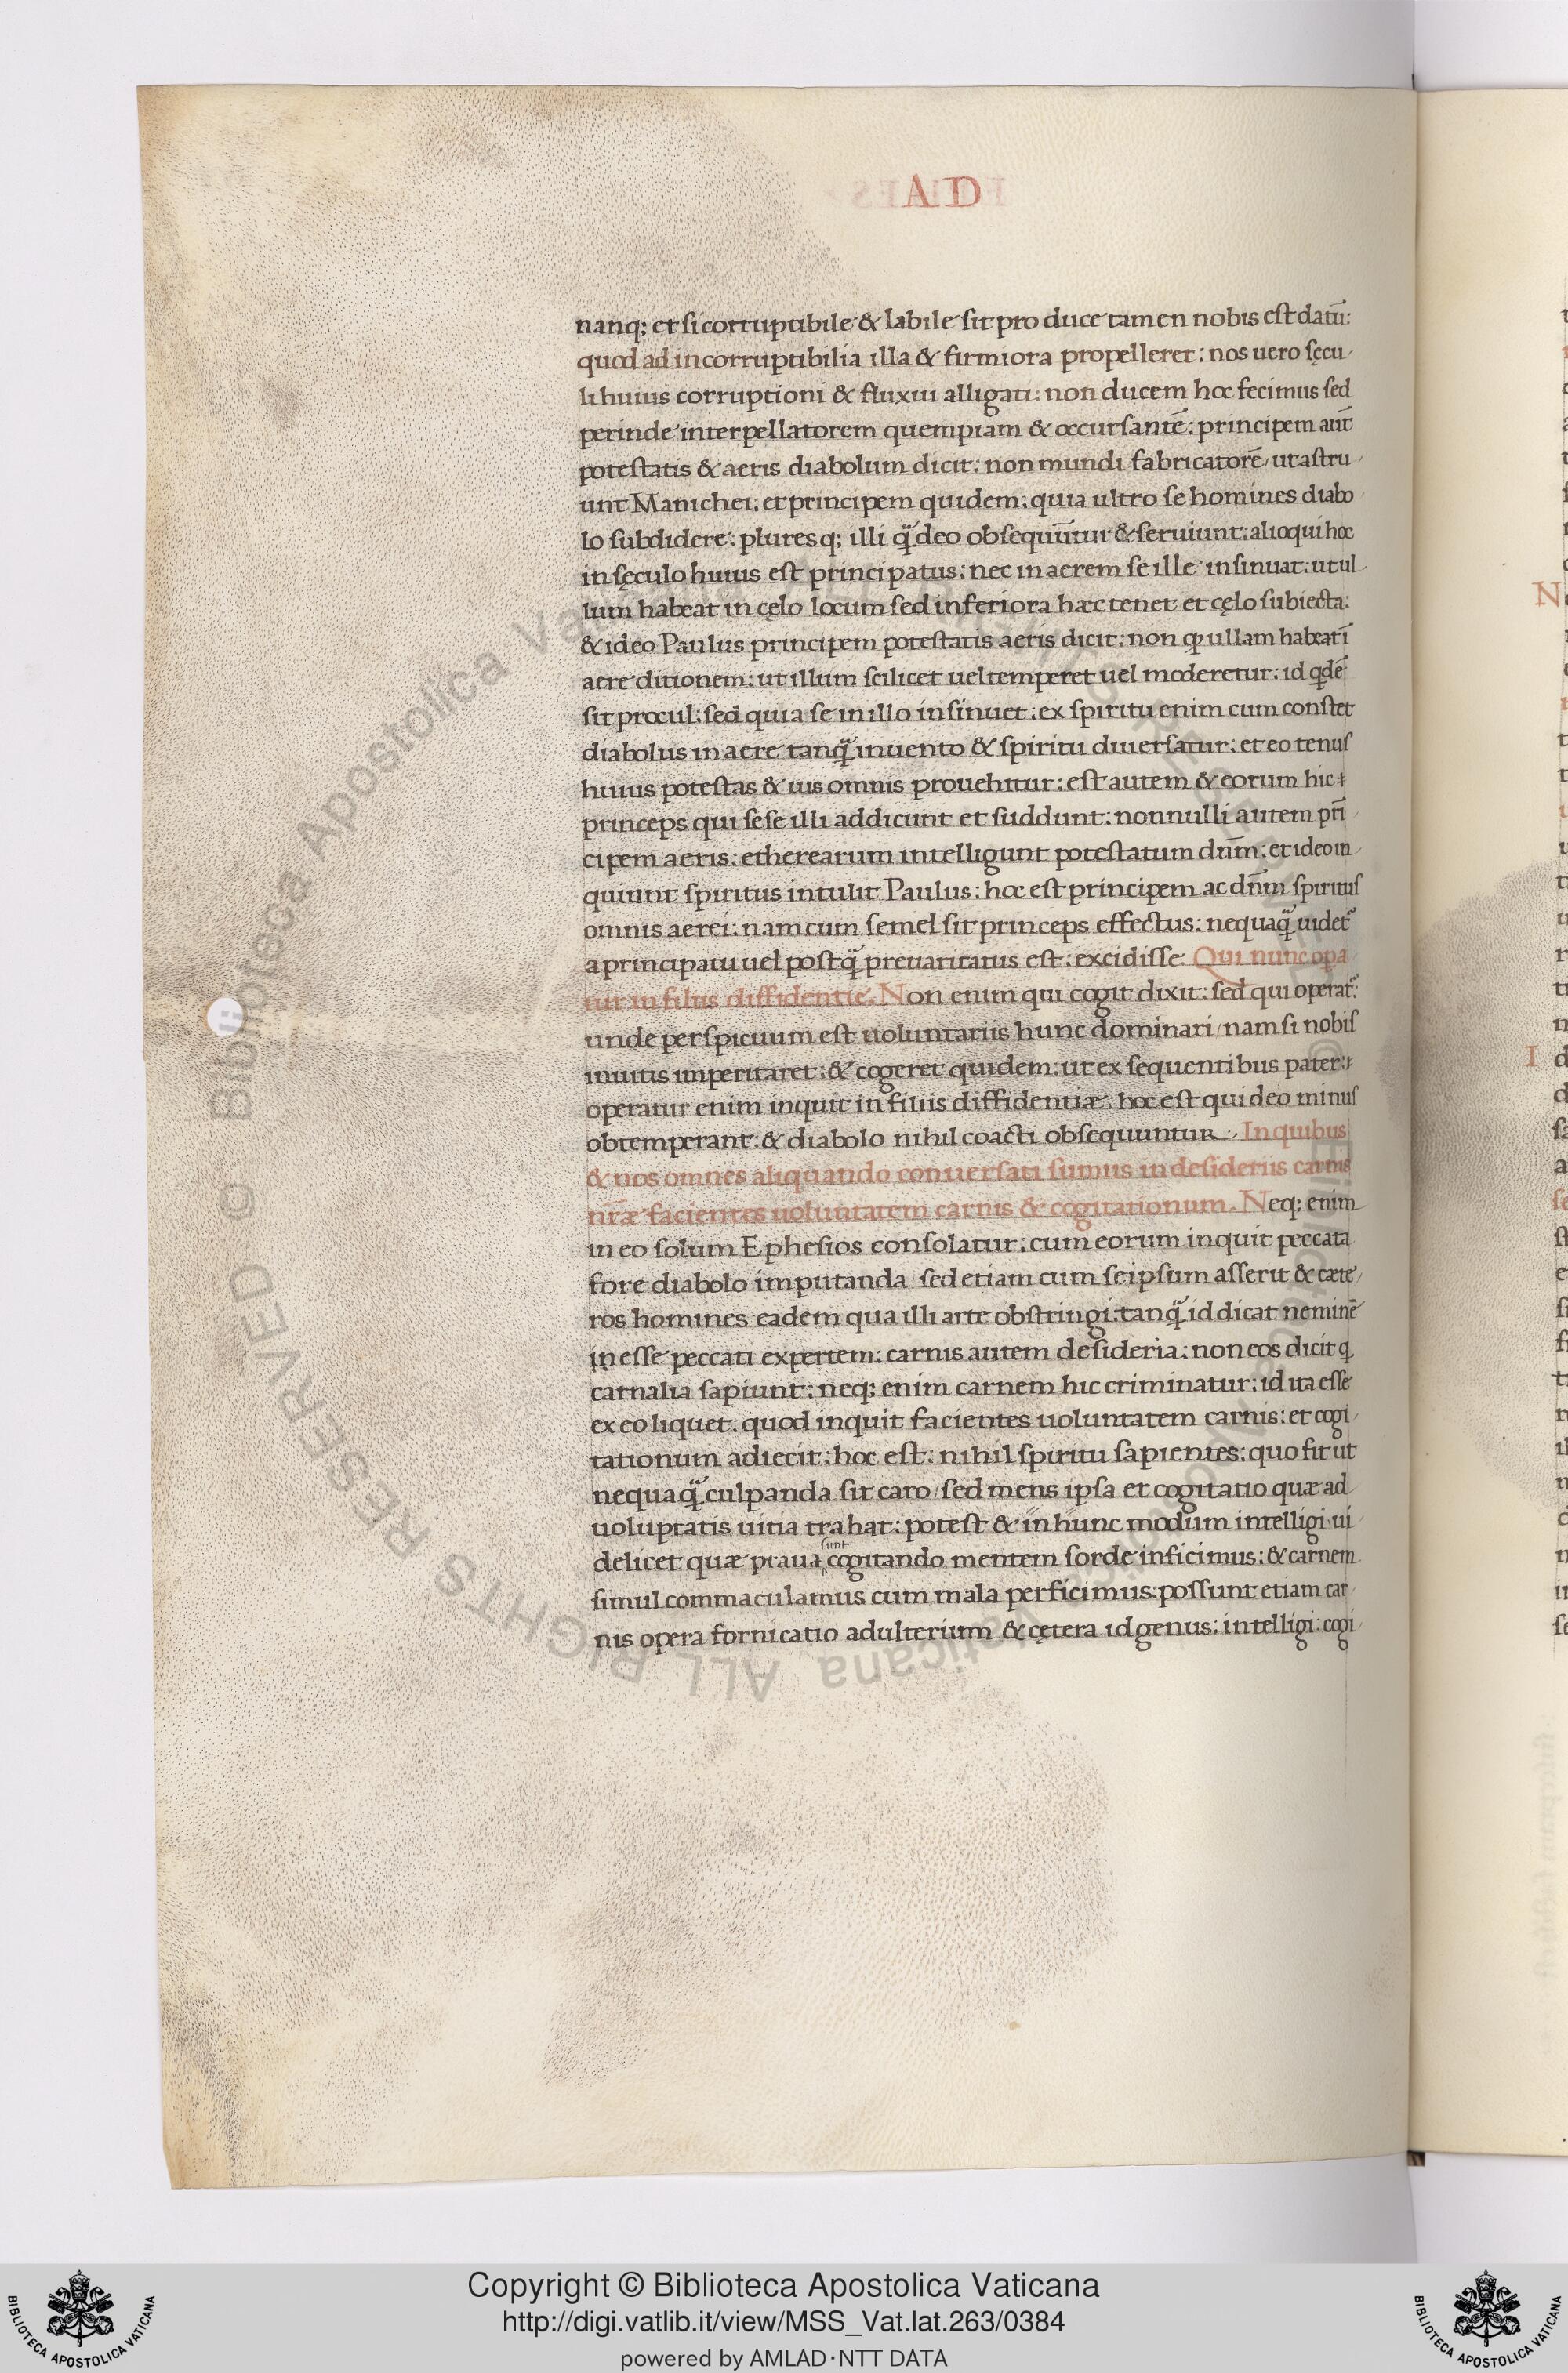 AD
nanq; et si corruptibile & labile sit pro duce tamen nobis est datū:
quod ad incorruptibilia illa & firmiora propelleret: nos uero sęcu
li huius corruptioni & fluxui alligati: non ducem hoc fecimus sed
perinde interpellatorem quempiam & occursantē: principem aūt
potestatis & aeris diabolum dicit: non mundi fabricatorē, ut astru
unt Manichei: et principem quidem: quia ultro se homines diabo
lo subdidere: plures q; illi q̈̃ deo obsequūtur & seruiunt: alioqui hoc
in sęculo huius est principatus: nec in aerem se ille insinuat: ut ul
lum habeat in cęlo locum sed inferiora hæc tenet et cęlo subiecta:
& ideo Paulus principem potestatis aeris dicit: non ꝙ ullam habeat ī
aere ditionem: ut illum scilicet uel temperet uel moderetur: id qdē
sit procul: sed quia se in illo insinuet: ex spiritu enim cum constet
diabolus in aere tanq̈̃ inuento & spiritu diuersatur: et eo tenus
huius potestas & uis omnis prouehitur: est autem & eorum hic
princeps qui sese illi addicunt et suddunt: nonnulli autem prī
cipem aeris: etherearum intelligunt potestatum dn̄m: et ideo in
quiunt spiritus intulit Paulus: hoc est principem ac dn̄m spiritus
omnis aerei: nam cum semel sit princeps effectus: nequaq̈̃ uidet᷑
a principatu uel postq̈̃ preuaritatus est: excidisse: Qui nunc opa
tur in filiis diffidentie. Non enim qui cogit dixit: sed qui operat᷑:
unde perspicuum est uoluntariis hunc dominari, nam si nobis
inuitis imperitaret: & cogeret quidem: ut ex sequentibus patet:
operatur enim inquit in filiis diffidentiæ: hoc est qui deo minus
obtemperant: & diabolo nihil coacti obsequuntur. In quibus
& nos omnes aliquando conuersati sumus in desideriis carnis
nr̄æ facientes uoluntatem carnis & cogitationum. Neq; enim
in eo solum Ephesios consolatur: cum eorum inquit peccata
fore diabolo imputanda, sed etiam cum seipsum asserit & cæte
ros homines eadem qua illi arte obstringi: tanq̈̃ id dicat neminē
in esse peccati expertem: carnis autem desideria: non eos dicit q
carnalia sapiunt: neq; enim carnem hic criminatur: id ita esse
ex eo liquet: quod inquit facientes uoluntatem carnis: et cogi
tationum adiecit: hoc est: nihil spiritu sapientes: quo fit ut
nequaq̈̃ culpanda sit caro, sed mens ipsa et cogitatio quæ ad
uoluptatis uitia trahat: potest & in hunc modum intelligi ui
sunt
delicet quæ praua cogitando mentem sorde inficimus: & carnem
simul commaculamus cum mala perficimus: possunt etiam car
nis opera fornicatio adulterium & cętera id genus: intelligi: cogi
N
I
Copyright © Biblioteca Apostolica Vaticana
http://digi.vatlib.it/view/MSS_Vat.lat.263/0384
powered by AMLAD·NTT DATA
BIBLIOTECA APOSTOLICA VATICANA
BIBLIOTECA APOSTOLICA VATICANA